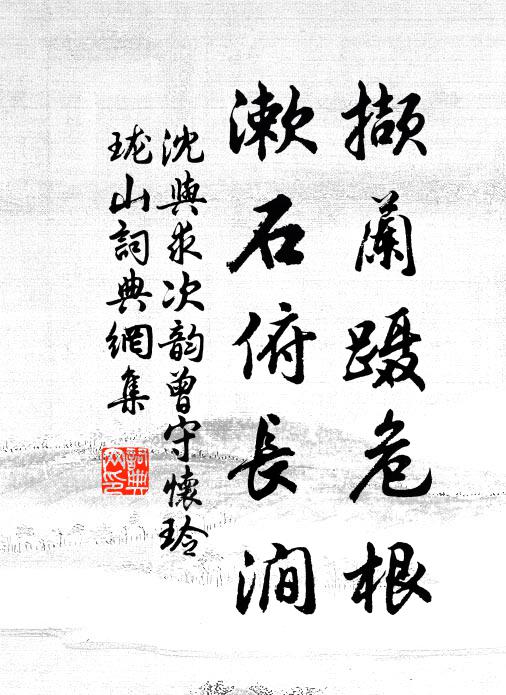 擷蘭蹑危根
漱石俯長澗
沈與求次韵曾守懷玲
珑山詞典網集
詞典
网印